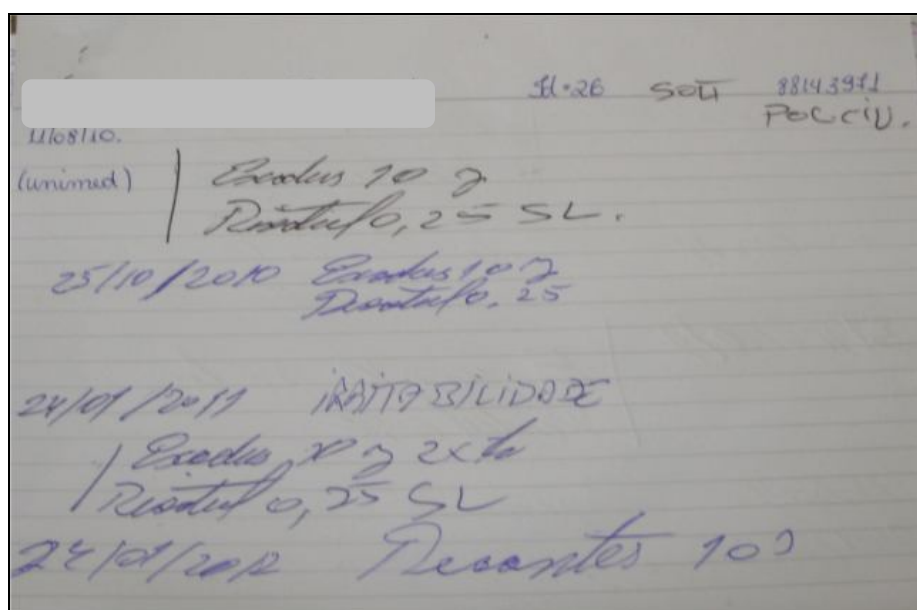 Id.26 SOLT 88143971
POL CIV.
11/08/10.
(unimed)
Exodus 10
Rivotril 0,25 SL.
25/10/2010 Exodus 10
Rivotril 0,25
24/01/2011 IRRITABILIDADE
Exodus 10
Rivotril 0,25 SL
24/01/2012 100